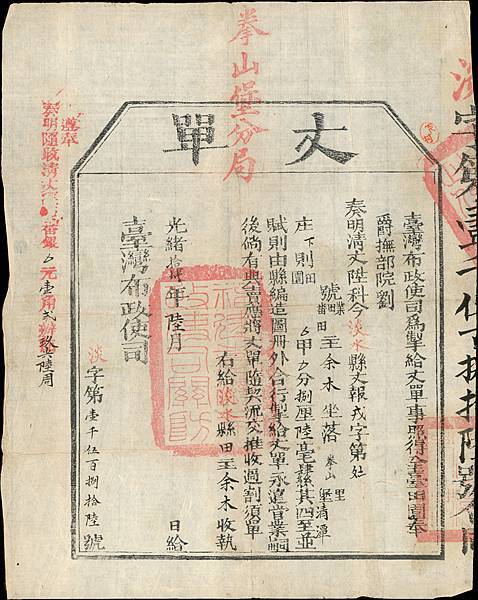 丈單
拳山堡分局
臺灣布政使司為掣給丈單事照得全臺田園奉
爵撫部院劉
奏明清丈陞科今淡水縣丈報戎字第
號業田主余木坐落拳山堡里清潭
庄下則田園甲分捌厘陸毫肆絲其四至並
賦則由縣編造圖冊外合行掣給丈單永遠管業嗣
後倘有典賣應將丈單隨契流交推收過割須單
右給淡水縣田主余木收執
光緒拾肆年陸月日給
臺灣布政使司
淡字第壹千伍百捌拾陸號
遵奉
奏明隨收清丈番銀元壹角